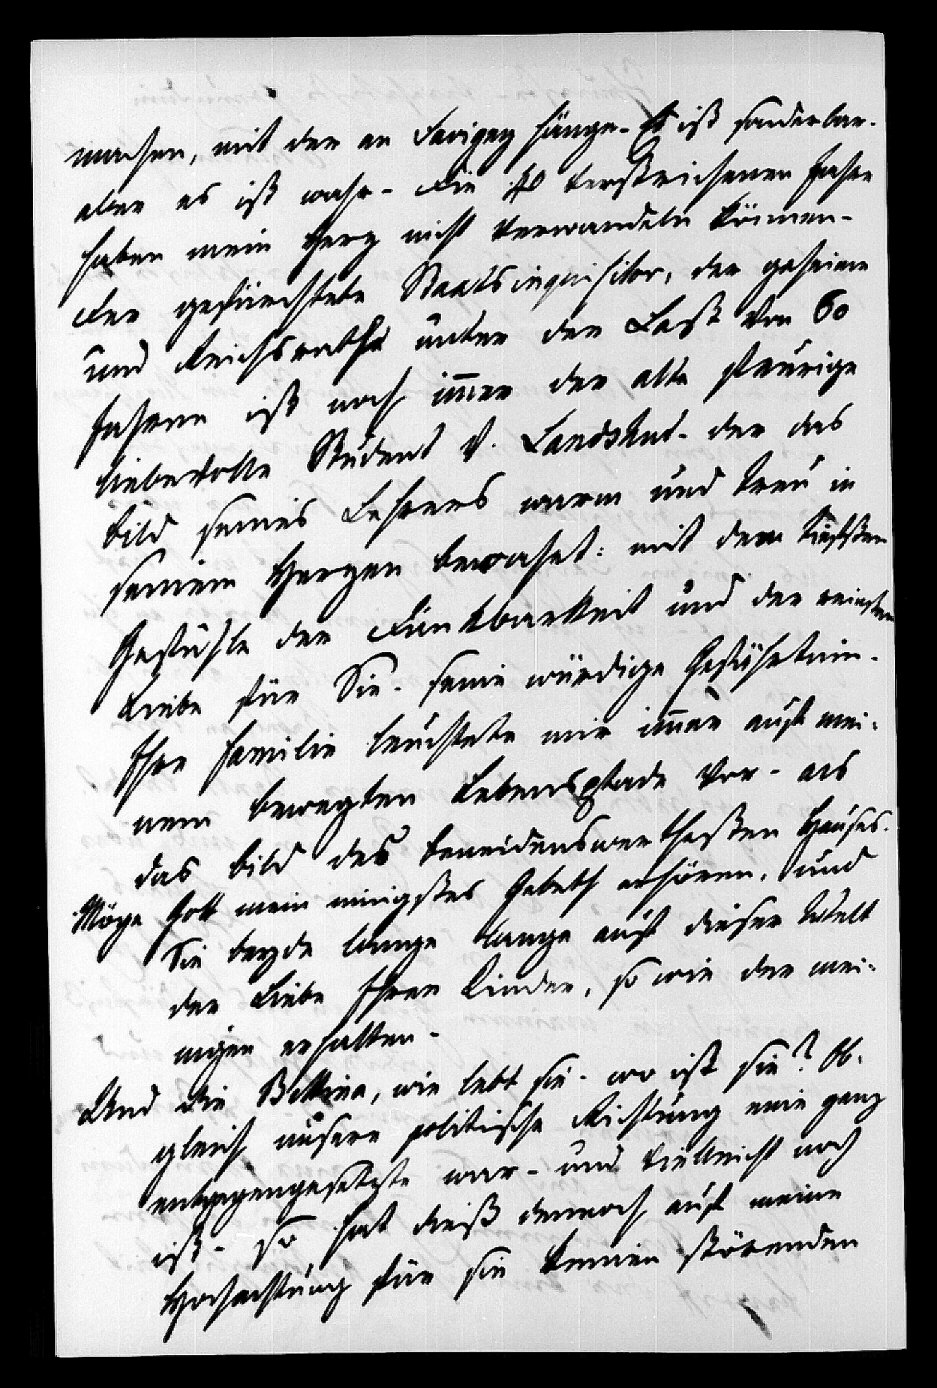 machen, mit der an Savigny hänge. Es ist sonderbar.
aber es ist wahr - die verstrichenen Jahre
haben mein Herz nicht verwandeln können -
der gefürchtete Staatsinquisitor, der geheime
und Reichsrath unter der Last von 60
Jahren ist noch immer der alte feurige
liebevolle Student v. Landshut - der das
Bild seines Lehrers warm und treu in
seinem Herzen bewahet: mit dem tiefsten
Gefühle der Dankbarkeit und der reinsten
Liebe für Sie - seine würdige Gefährtin.
Ihre Familie leuchtete mir immer auf mei-
nem bewegten Lebenspfade vor - als
das Bild des beneidenswerthesten Hauses.
Möge Gott mein innigstes Gebeth erhören, und
Sie beyde lange lange auf dieser Welt
der Liebe Ihrer Kinder, so wie der mei-
nigen erhalten -
Und die Bettina, wie lebt sie - wo ist sie? Ob-
gleich unsere politische Richtung eine ganz
entgegengesetzte war - und vielleicht noch
ist - so hat dieß dennoch auf meine
Hochachtung für sie keinen störenden